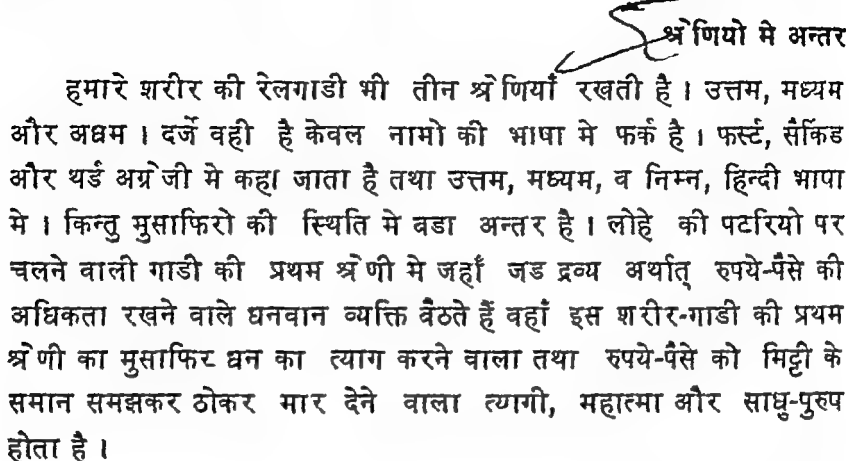 श्रेणियो मे अन्तर
हमारे शरीर की रेलगाडी भी तीन श्रेणियाँ रखती है । उत्तम, मध्यम
और अधम । दर्जे वही है केवल नामो की भाषा मे फर्क है । फर्स्ट, सैकिंड
और थर्ड अग्रेजी मे कहा जाता है तथा उत्तम, मध्यम, व निम्न, हिन्दी भाषा
मे । किन्तु मुसाफिरो की स्थिति मे बडा अन्तर है । लोहे की पटरियो पर
चलने वाली गाडी की प्रथम श्रेणी मे जहाँ जड द्रव्य अर्थात् रुपये-पैसे की
अधिकता रखने वाले धनवान व्यक्ति बैठते हैं वहाँ इस शरीर-गाडी की प्रथम
श्रेणी का मुसाफिर धन का त्याग करने वाला तथा रुपये-पैसे को मिट्टी के
समान समझकर ठोकर मार देने वाला त्यागी, महात्मा और साधु-पुरुष
होता है ।